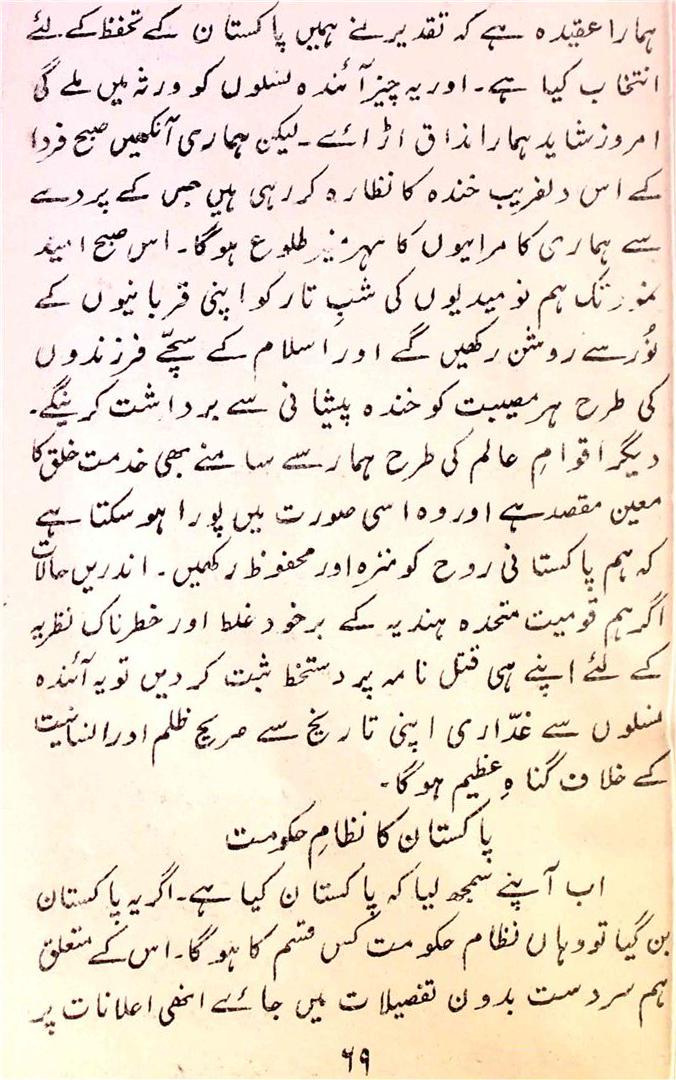 ہمارا عقیدہ ہے کہ تقدیر نے ہمیں پاکستان کے تحفظ کے لئے
انتخاب کیا ہے۔ اور یہ چیز آئندہ نسلوں کو ورثہ میں ملے گی
امروز شاید ہمارا مذاق اڑائے۔ لیکن ہماری آنکھیں صبح فردا
کے اس دلفریب خندہ کا نظارہ کر رہی ہیں جس کے پردے
سے ہماری کامرانیوں کا مہر منیر طلوع ہوگا۔ اس صبح امید
نمود تک ہم نومیدیوں کی شبِ تار کو اپنی قربانیوں کے
نُور سے روشن رکھیں گے اور اسلام کے سچّے فرزندوں
کی طرح ہر مصیبت کو خندہ پیشانی سے برداشت کرینگے۔
دیگر اقوامِ عالم کی طرح ہمارے سامنے بھی خدمت خلق کا
معین مقصد ہے اور وہ اسی صورت میں پورا ہو سکتا ہے
کہ ہم پاکستانی روح کو منزہ اور محفوظ رکھیں۔ اندریں حالات
اگر ہم قومیت متحدہ ہندیہ کے برخود غلط اور خطرناک نظریہ
کے لئے اپنے ہی قتل نامہ پر دستخط ثبت کر دیں تو یہ آئندہ
نسلوں سے غدّاری اپنی تاریخ سے صریح ظلم اور انسانیت
کے خلاف گناہِ عظیم ہوگا۔
پاکستان کا نظامِ حکومت
اب آپنے سمجھ لیا کہ پاکستان کیا ہے۔ اگر یہ پاکستان
بن گیا تو وہاں نظام حکومت کس قسم کا ہوگا۔ اس کے متعلق
ہم سردست بدون تفصیلات میں جائے انھی اعلانات پر
۶۹